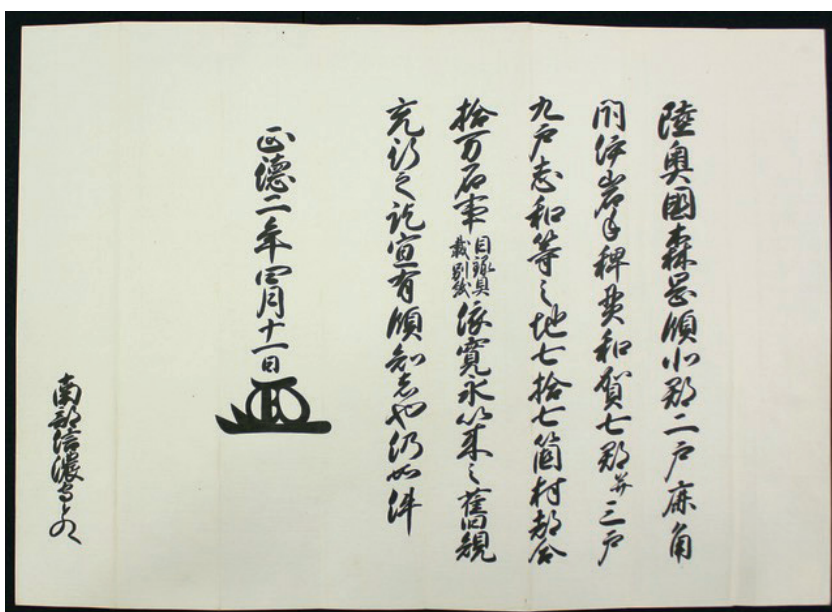 陸奥國森岡領北郡二戸鹿角
閇伊岩手稗貫和賀七郡并三戸
九戸志和等之地七拾七箇村都合
拾万石事目録具載別紙依寛永以来之舊規
充行之訖宜有領知者也仍如件
正徳二年四月十一日
南部信濃守とのへ